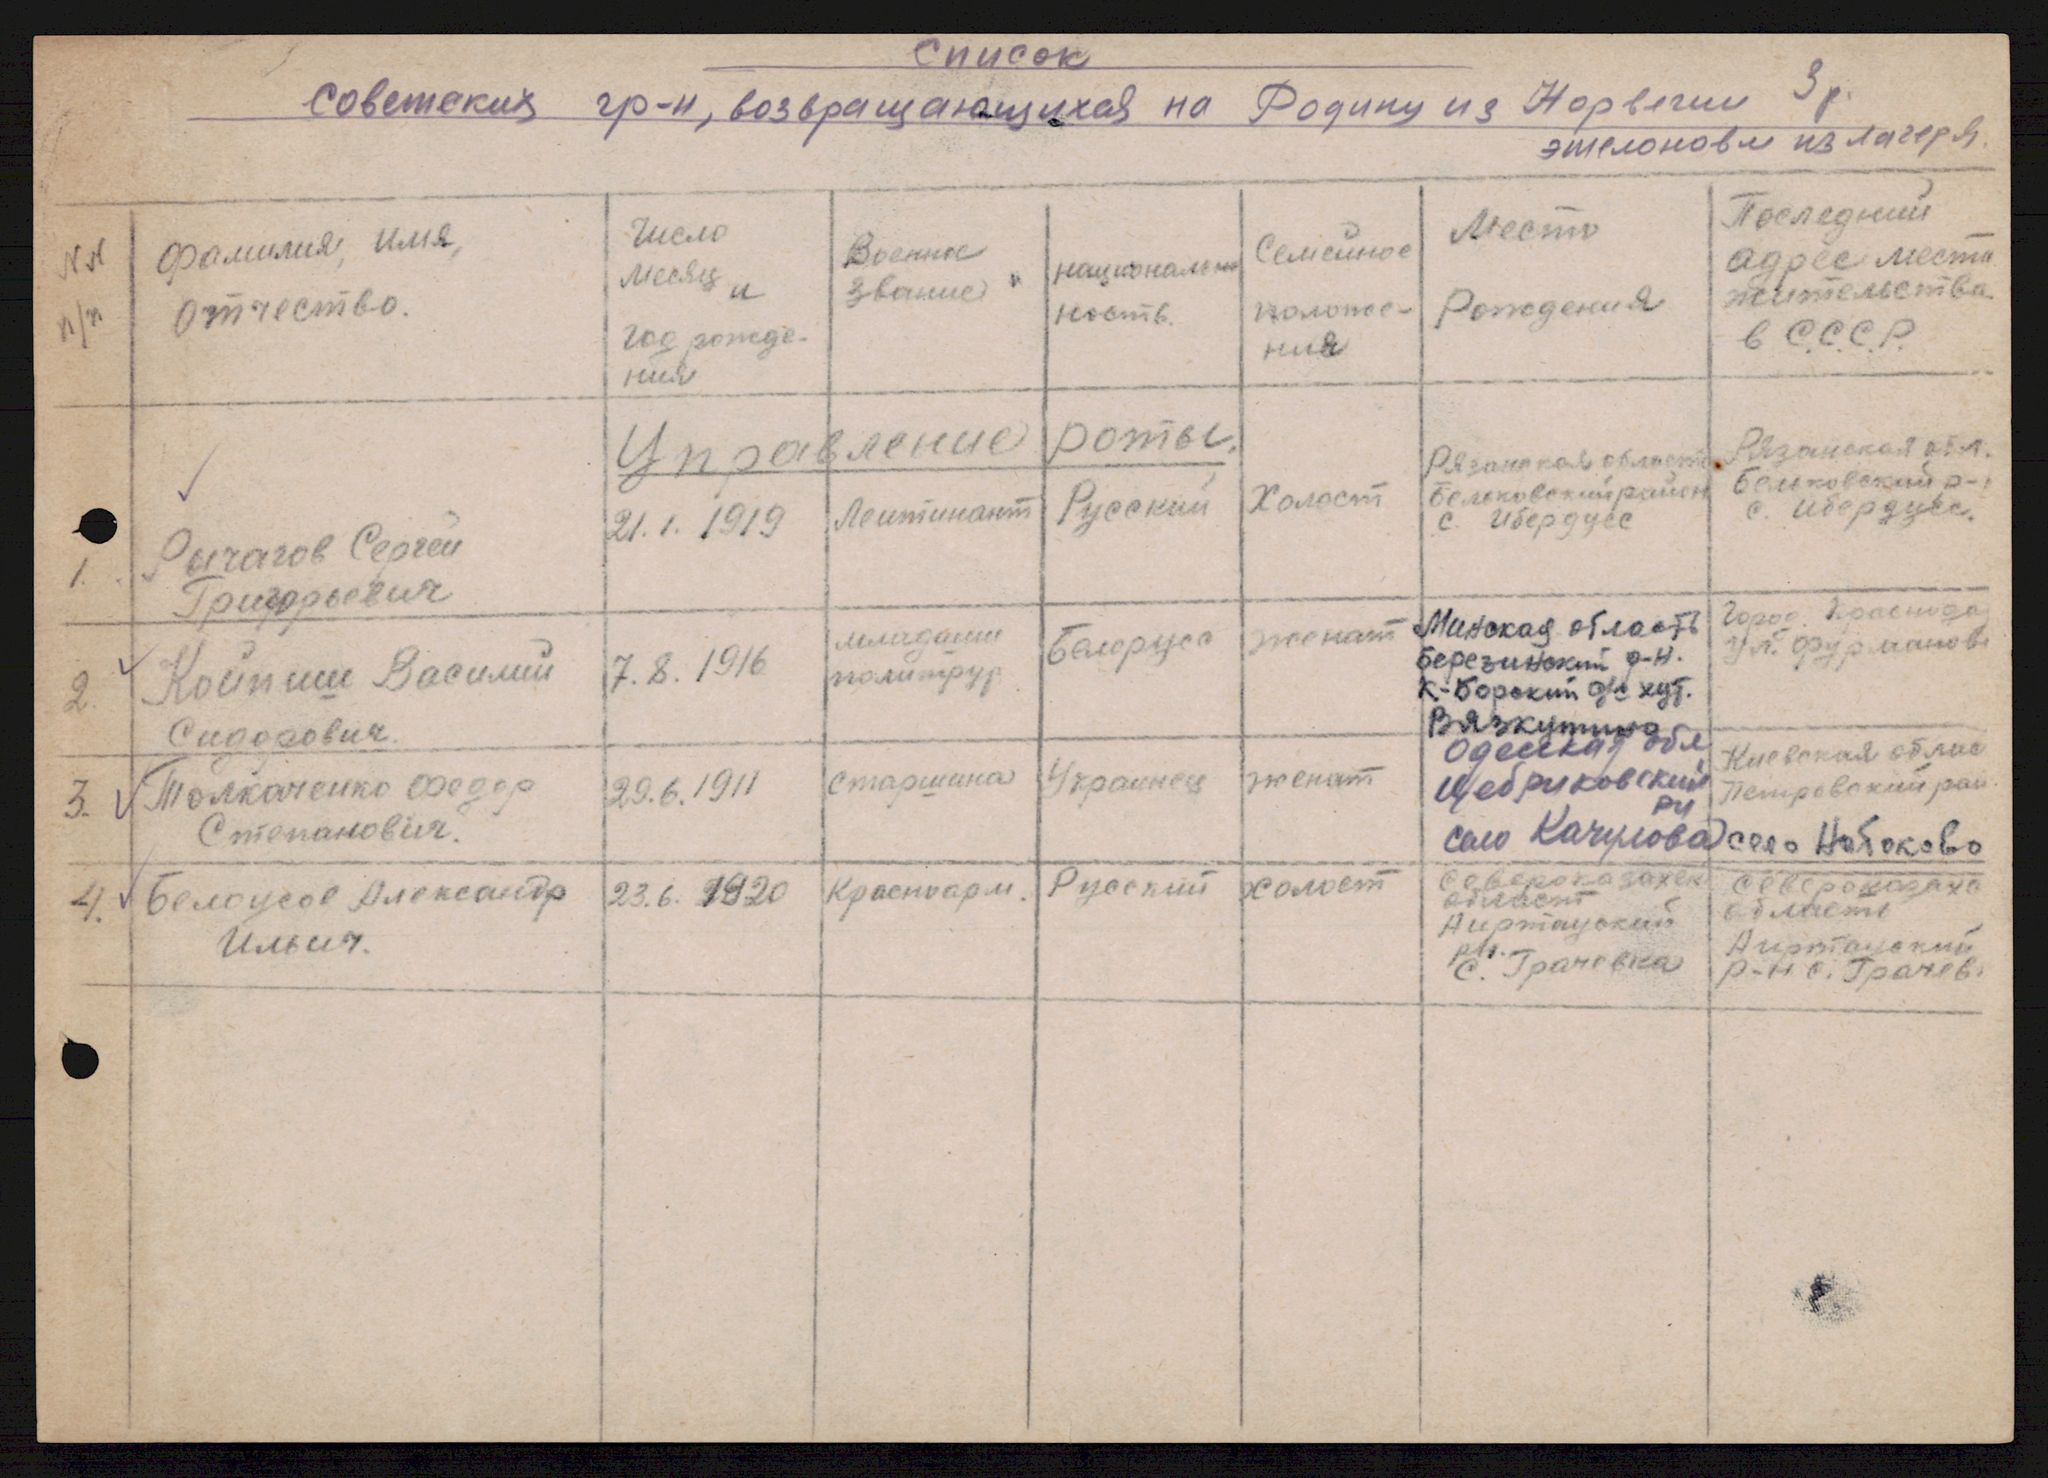 Список
советских гр-н, возвращающихся на Родину из Норвегии 3 р.
эшелоновм из лагеря.
NN
п/п
Фамилия, имя,
отчество.
Число
месяц и
год рожде-
ния
Военное
звание
национальн
ность.
Семейное
положе-
ния
Место
Рождения
Последний
адрес места
жительства
в С.С.С.Р.
Управление роты.
1.
Рычагов Сергей
Григорьевич
21.1.1919
Леитинант
Русский
Холост
Рязанская область
Бельковский район
с. Ибердусс
Рязанская обл.
Бельковский р-
с. Ибердусс.
2.
Койпиш Василий
Сидорович.
7.8.1916
младши
политрур
Белорусс
женат
Минская область
Березинский р-н.
к-Борский с/с хут.
Вязкутино
Город. Краснода
ул. Фурманов
3.
Толкаченко Федор
Степанович.
29.6.1911
старшина
Украинец
женат
Одесская обл
Цебриковский
рн
село Качулова
Киевская облас
Петровский рай
село Набоково
4.
Белоусов Александр
Ильич.
23.6.1920
Красноарм.
Русский
холост
Североказахск
област
Аиртауский
рн.
С. Грачевка
Североказахс
область
Аиртауский
р-н с. Грачев